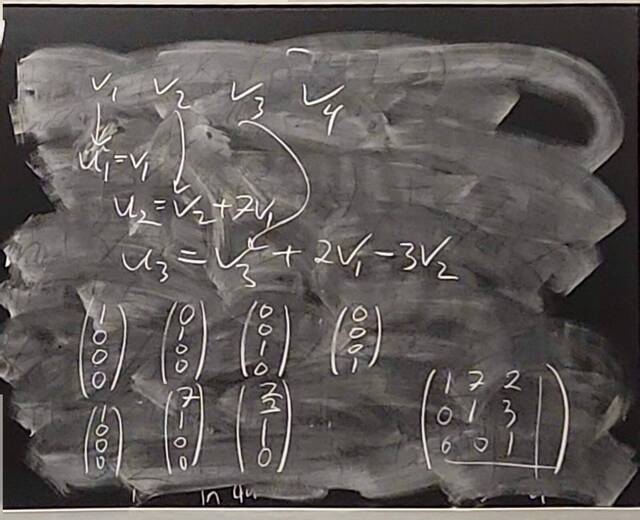 v₁ v₂ v₃ v₄
u₁ = v₁
u₂ = v₂ + 7v₁
u₃ = v₃ + 2v₁ − 3v₂
(1 0 0 0) (0 1 0 0) (0 0 1 0) (0 0 0 1)
(1 0 0 0) (7 1 0 0)
(1 7 2
0 1 3
0 0 1)